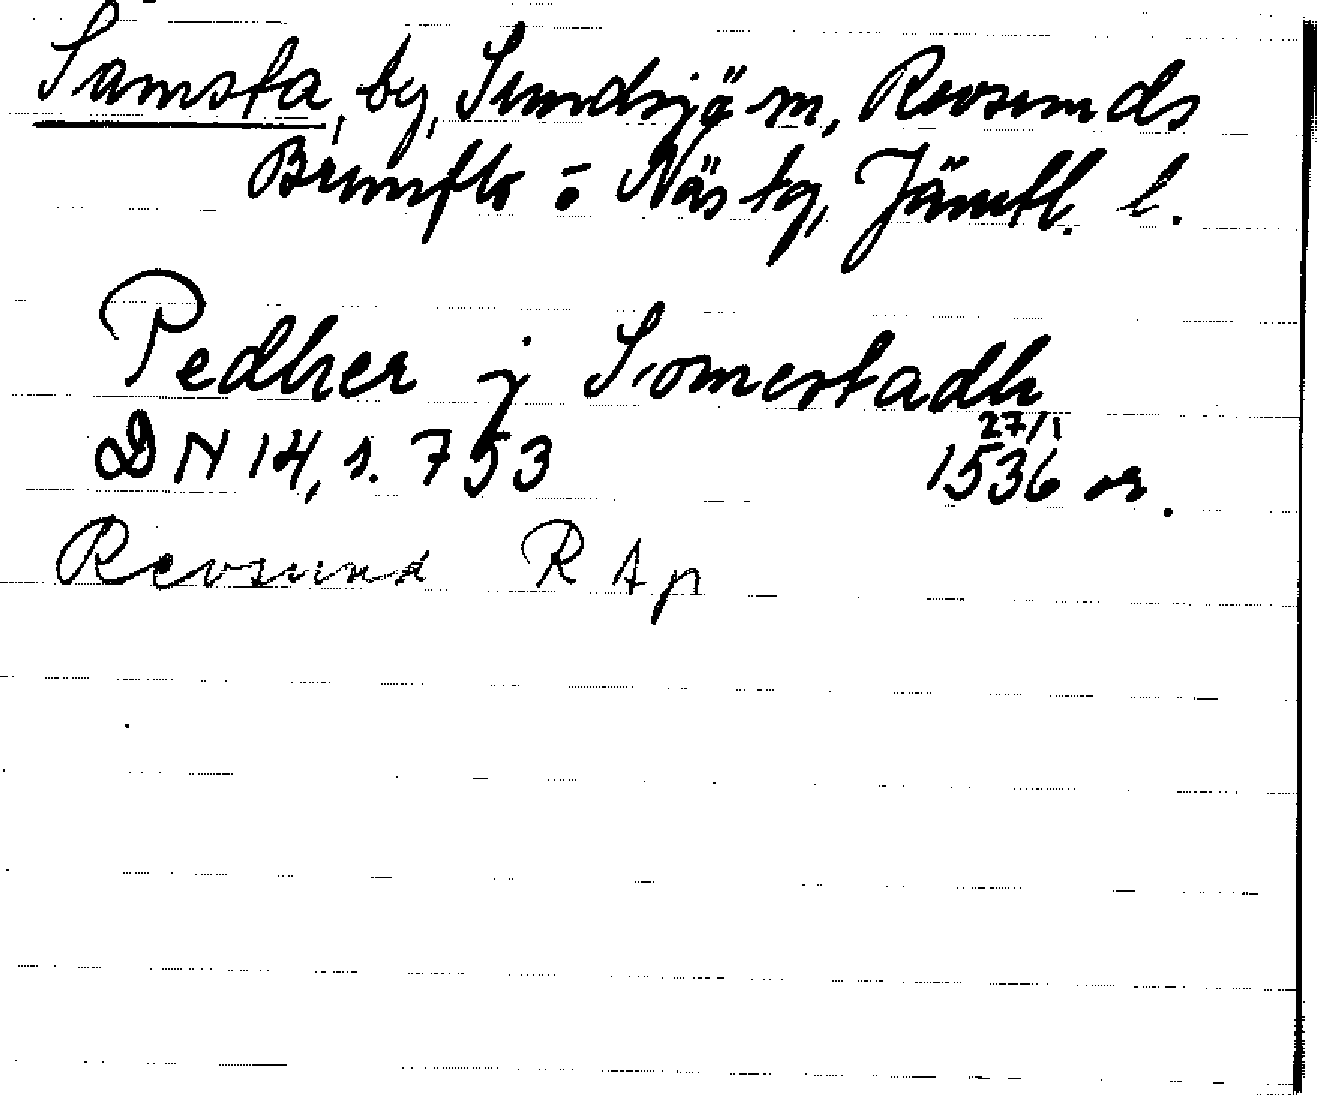 Samsta, by, Sundsjö sn, Revsunds
Brunflo o Näs tg, Jämtl. l.
Pedher j Somerstadh
DN 14, s. 753 27/1 1536 or.
Revsund R Ap